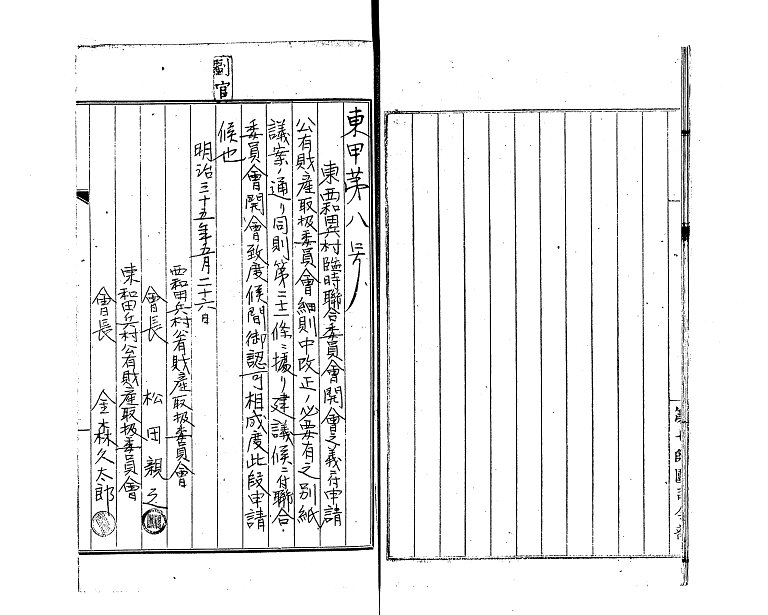 東甲第八号
東西和田兵村臨時聯合委員會開會之義ニ付申請
公有財産取扱委員會細則中改正ノ必要有之別紙
議案ノ通リ同則第二十二條ニ據リ建議候ニ付聯合
委員會開會致度候間御認可相成度此段申請
候也
明治三十五年五月二十六日
西和田兵村公有財産取扱委員會
會長 松田親之
東和田兵村公有財産取扱委員會
會長 金森久太郎
副官
第七師團司令部